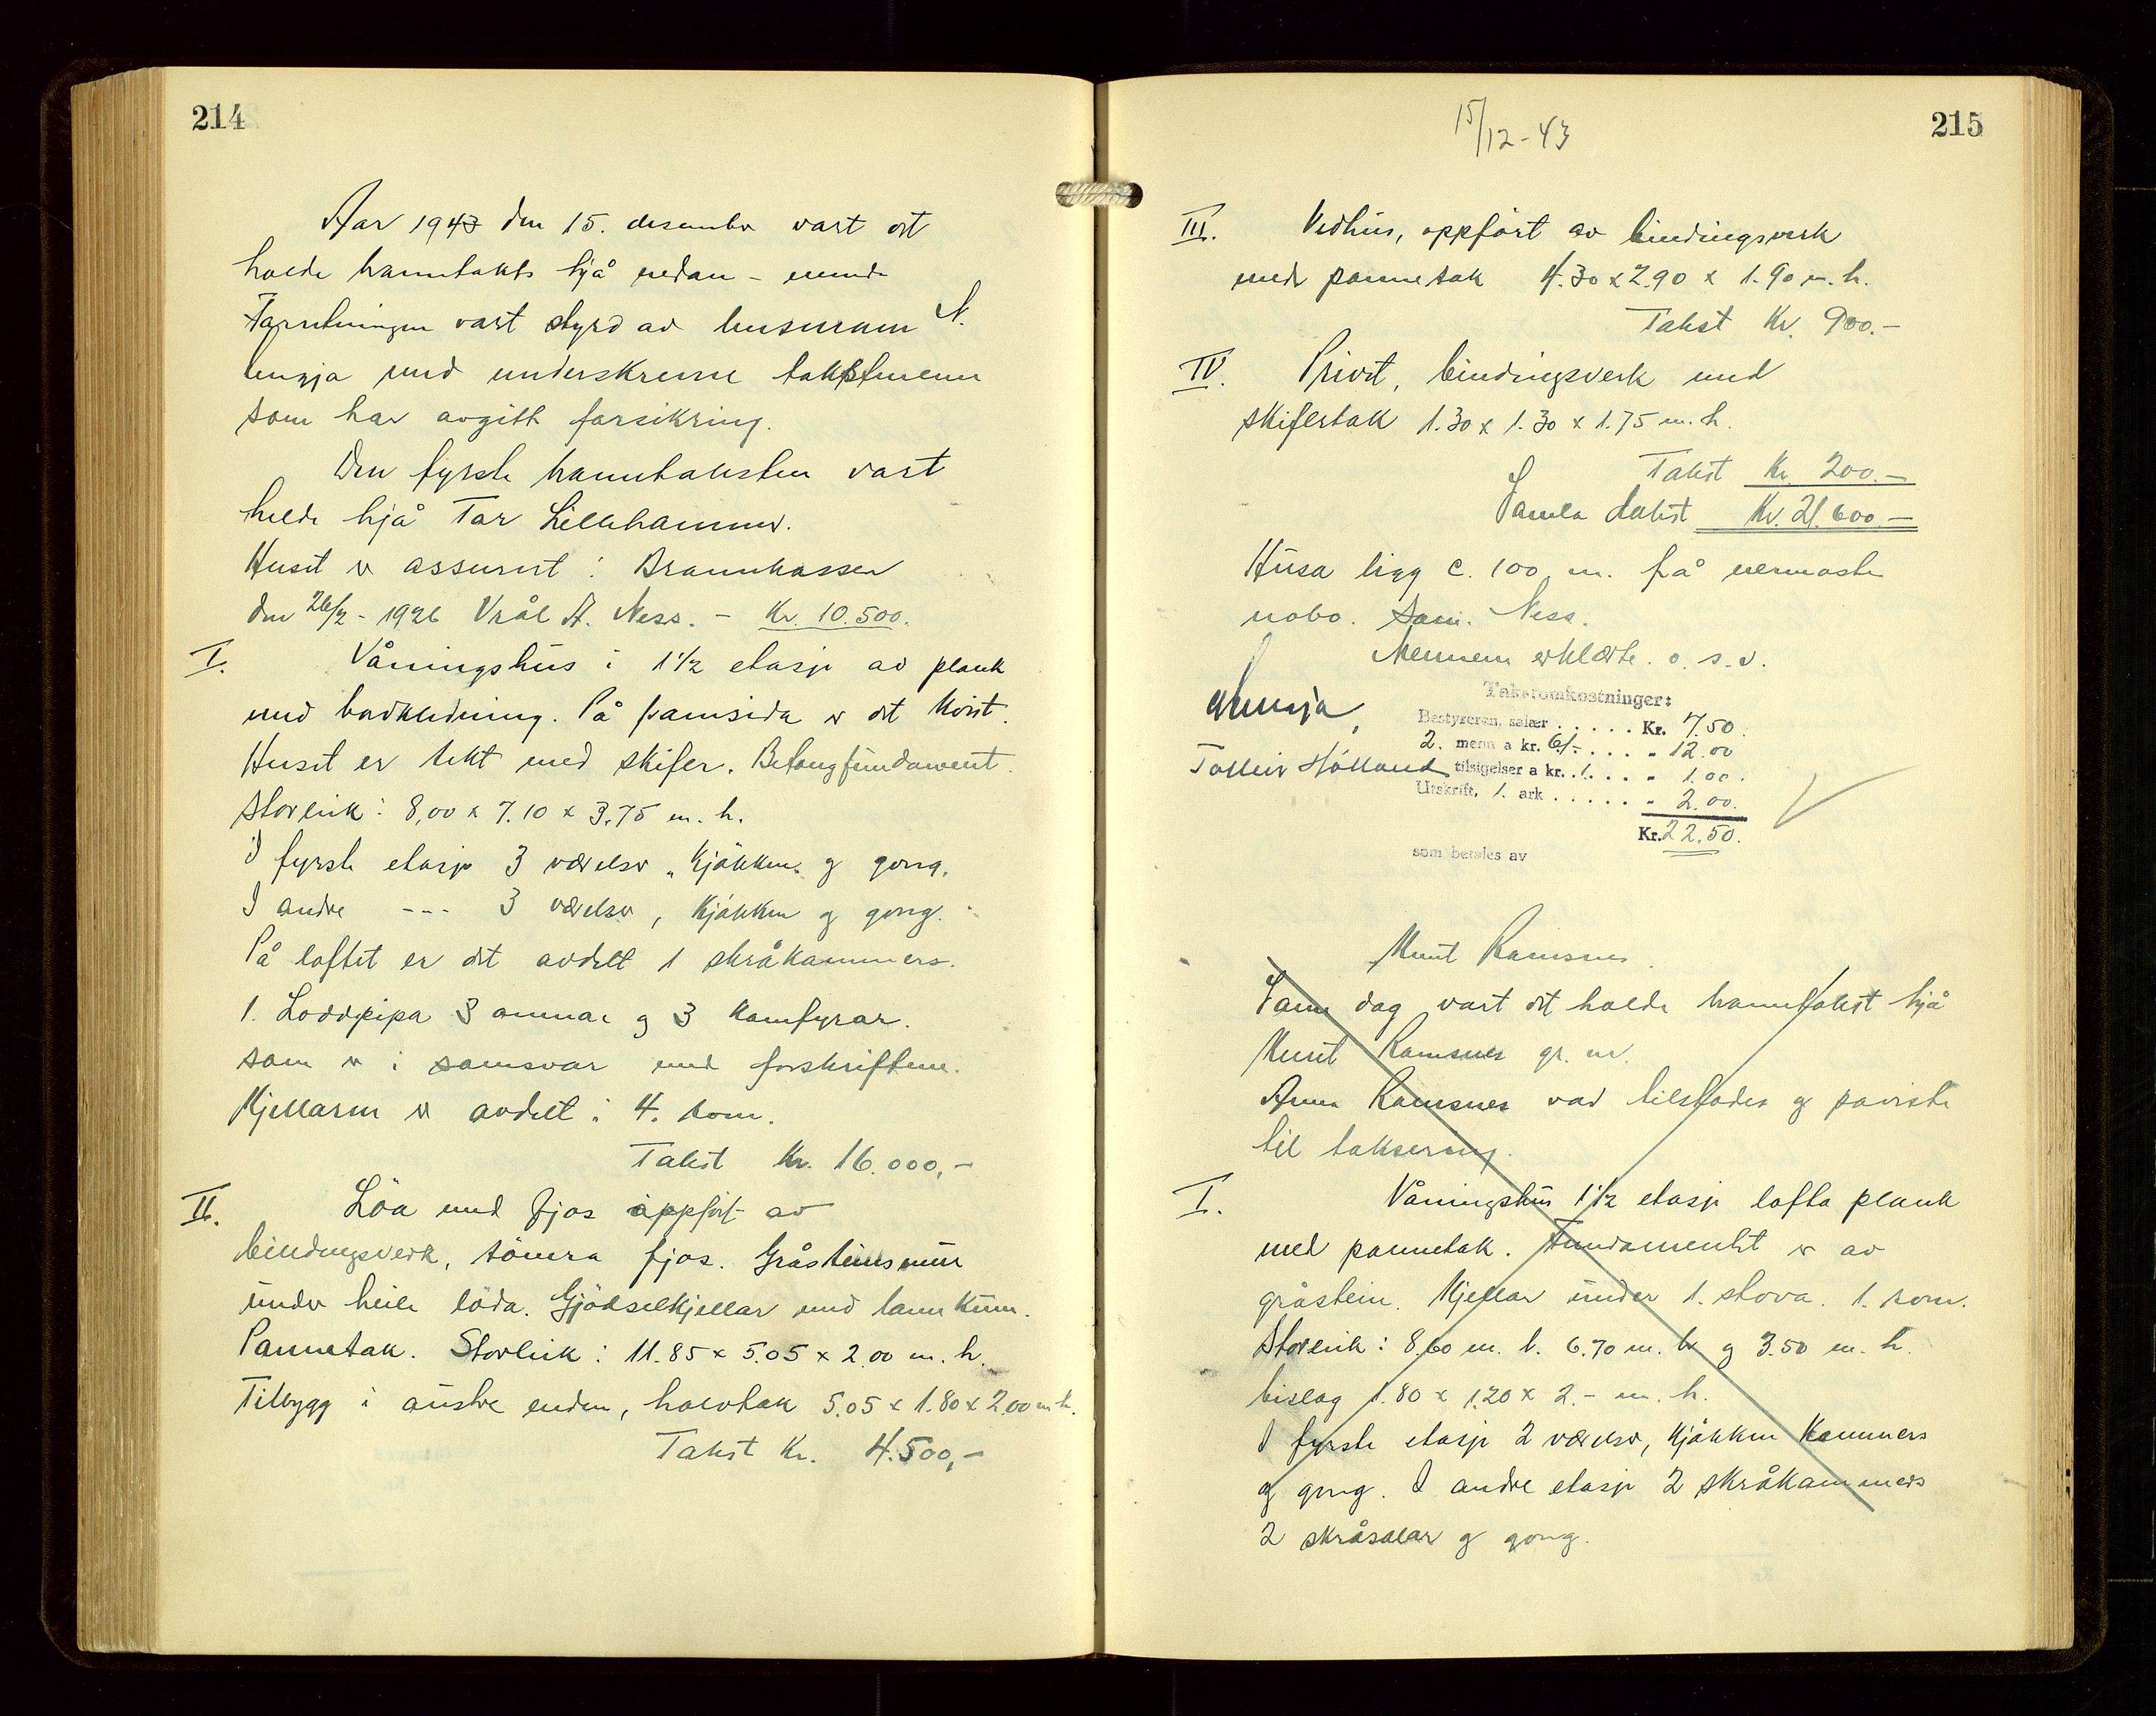 214
Aar 1943 den 15. desember vart det
halde branntakts hjå nedan - nemnde
Forretningen vart styrd av lensmann N.
lensja med underskrevne takstmenn
som har avgitt forsikring.
Den fyrste branntaksten vart
helde hjå Tor Lillehammer.
Huset er assurert i Brannkassen
den 26/2 - 1926 Vrål A. Ness. - Kr. 10.500.
I. Våningshus i 1 1/2 etasje av plank
med bordkledning. På framsida er det kvist.
Huset er tekt med skifer. Betongfundament.
Storleik: 8,00 x 7.10 x 3.75 m. h.
I fyrste etasje 3 værelser, kjøkken og gong.
I andre --- 3 værelser, kjøkken og gong.
På loftet er det avdelt 1 skråkammers.
1. Loddpipa 3 omnar og 3 komfyrar.
som er i samsvar med forskriftene.
Kjellaren er avdelt i 4. rom.
Takst Kr. 16.000,-
II. Löa med fjos oppført av
bindingsverk, tömra fjos. Gråsteinsmur
under heile löda. Gjödselkjellar med landkum.
Pannetak. Storleik: 11.85 x 5.05 x 2.00 m. h.
Tilbygg i austre enden, halvtak 5.05 x 1.80 x 2.00 m h.
Takst Kr. 4.500,-
15/12-43
215
III. Vedhus, oppført av bindingsverk
med pannetak 4.30 x 2.90 x 1.90 m. h.
Takst Kr. 900.-
IV. Privet, bindingsverk med
skifertak 1.30 x 1.30 x 1.75 m. h.
Takst Kr. 200.-
Samla takst Kr. 21.600.-
Husa ligg c. 100 m. frå nermaste
nobo. Sam. Ness.
Mennene erklærte. o. s. v.
Takstomkostninger:
Bestyreren, salær . . . . . Kr. 7.50.
2. menn a kr. 6/- . . . . " 12.00
Tolleiv Hålland tilsigelser a kr. 1. . . . " 1.00.
Utskrift, 1. ark . . . . . " 2.00.
Kr. 22.50.
som betales av
Knut Ramsnes.
Same dag vart det halde branntakst hjå
Knut Ramsnes gr. nr.
Anna Ramsnes var tilstades og påviste
til taksering.
I. Våningshus 1 1/2 etasje lafta plank
med pannetak. Fundamentet er av
gråstein. Kjellar under 1. stova. 1. rom.
Storleik: 8.60 m. l. 6.70 m. br og 3.50 m. h.
bislag 1.80 x 1.20 x 2.- m. h.
I fyrste etasje 2 værelser, kjøkken kammers
og gong. I andre etasje 2 skråkammers
2 skråsalar og gong.